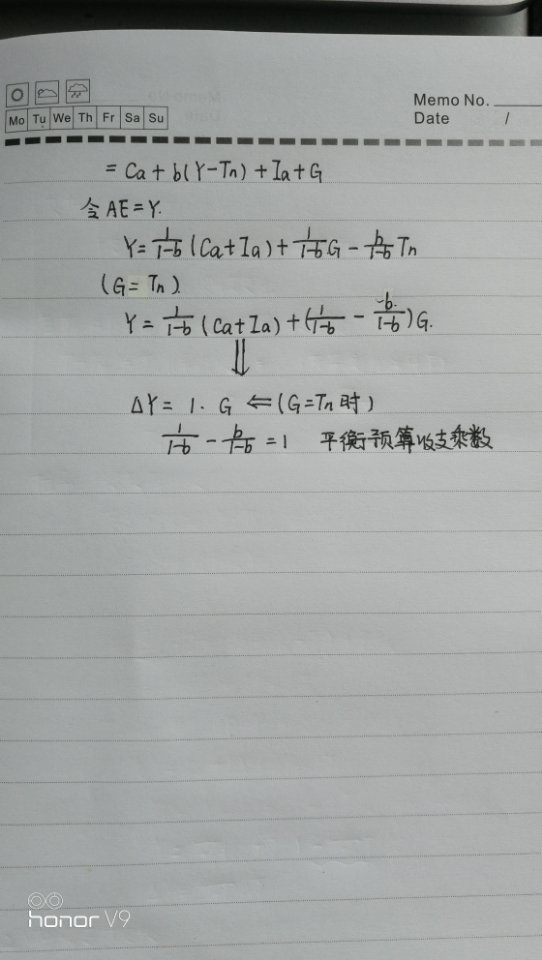 Mo Tu We Th Fr Sa Su
Memo No.
Date /
= Ca + b(Y-Tn) + Ia + G
令 AE = Y.
Y = \frac{1}{1-b} (Ca + Ia) + \frac{1}{1-b} G - \frac{b}{1-b} Tn
(G = Tn)
Y = \frac{1}{1-b} (Ca + Ia) + (\frac{1}{1-b} - \frac{-b}{1-b}) G.
⇓
ΔY = 1 · G ⇐ (G = Tn 时)
\frac{1}{1-b} - \frac{b}{1-b} = 1 平衡预算收支乘数
honor V9